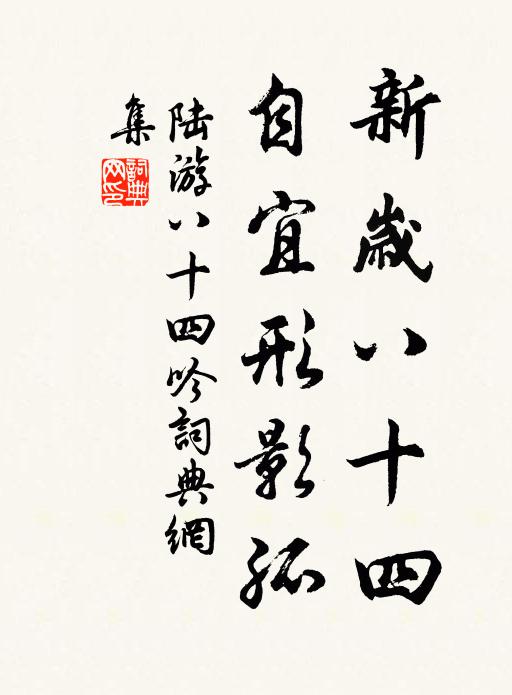 新歲八十四
自宜形影孤
陸游八十四吟詞典網
集
詞典
网印